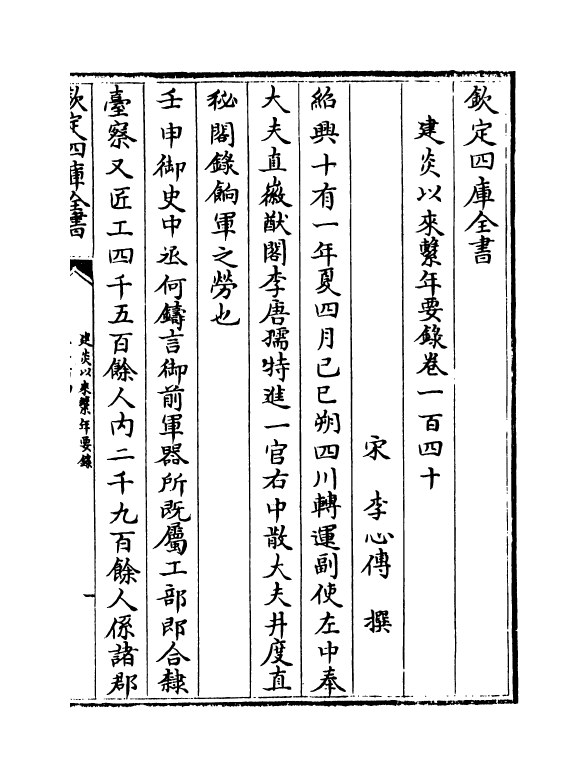 欽定四庫全書
建炎以來繫年要錄卷一百四十
宋　李心傳　撰
紹興十有一年夏四月己巳朔四川轉運副使左中奉
大夫直徽猷閣李唐孺特進一官右中散大夫井度直
秘閣錄餉軍之勞也
壬申御史中丞何鑄言御前軍器所既屬工部即合隸
臺察又匠工四千五百餘人內二千九百餘人係諸郡
欽定四庫全書
建炎以來繫年要錄
一